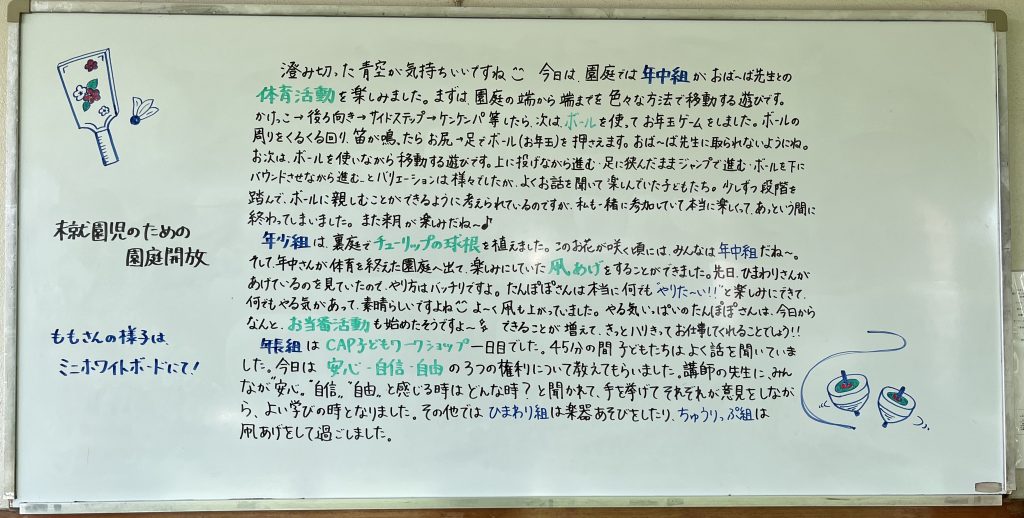 未就園児のための
園庭開放
ももさんの様子は、
ミニホワイトボードにて!
澄み切った青空が気持ちいいですね 今日は、園庭では年中組が、おば〜ば先生との
体育活動を楽しみました。まずは、園庭の端から端までを色々な方法で移動する遊びです。
かけっこ→後ろ向き→サイドステップ→ケンケンパ等したら、次は、ボールを使ってお年玉ゲームをしました。ボールの
周りをくるくる回り、笛が鳴ったらお尻→足でボール(お年玉)を押さえます。おば〜ば先生に取られないようにね。
お次は、ボールを使いながら移動する遊びです。上に投げながら進む・足に挟んだままジャンプで進む・ボールを下に
バウンドさせながら進む…とバリエーションは様々でしたが、よくお話を聞いて楽しんでいた子どもたち。少しずつ段階を
踏んで、ボールに親しむことができるように考えられているのですが、私も一緒に参加していて本当に楽しくって、あっという間に
終わってしまいました。また来月が楽しみだね〜♪
年少組は、裏庭でチューリップの球根を植えました。このお花が咲く頃には、みんなは年中組だね〜。
そして、年中さんが体育を終えた園庭へ出て、楽しみにしていた凧あげをすることができました。先日、ひまわりさんが
あげているのを見ていたので、やり方はバッチリですよ。たんぽぽさんは本当に何でも"やりた〜い!!"と楽しみにできて、
何でもやる気があって、素晴らしいですよね よ〜く凧も上がっていました。やる気いっぱいのたんぽぽさんは、今日から
なんと、お当番活動も始めたそうですよ〜 できることが増えて、きっとハリきってお仕事してくれることでしょう!!
年長組はCAP子どもワークショップ一日目でした。45分の間子どもたちはよく話を聞いていま
した。今日は 安心・自信・自由の3つの権利について教えてもらいました。講師の先生に、みん
なが"安心"。"自信"、"自由"と感じる時はどんな時?と聞かれて、手を挙げてそれぞれが意見をしなが
ら、よい学びの時となりました。その他では、ひまわり組は楽器あそびをしたり、ちゅうりっぷ組は
凧あげをして過ごしました。